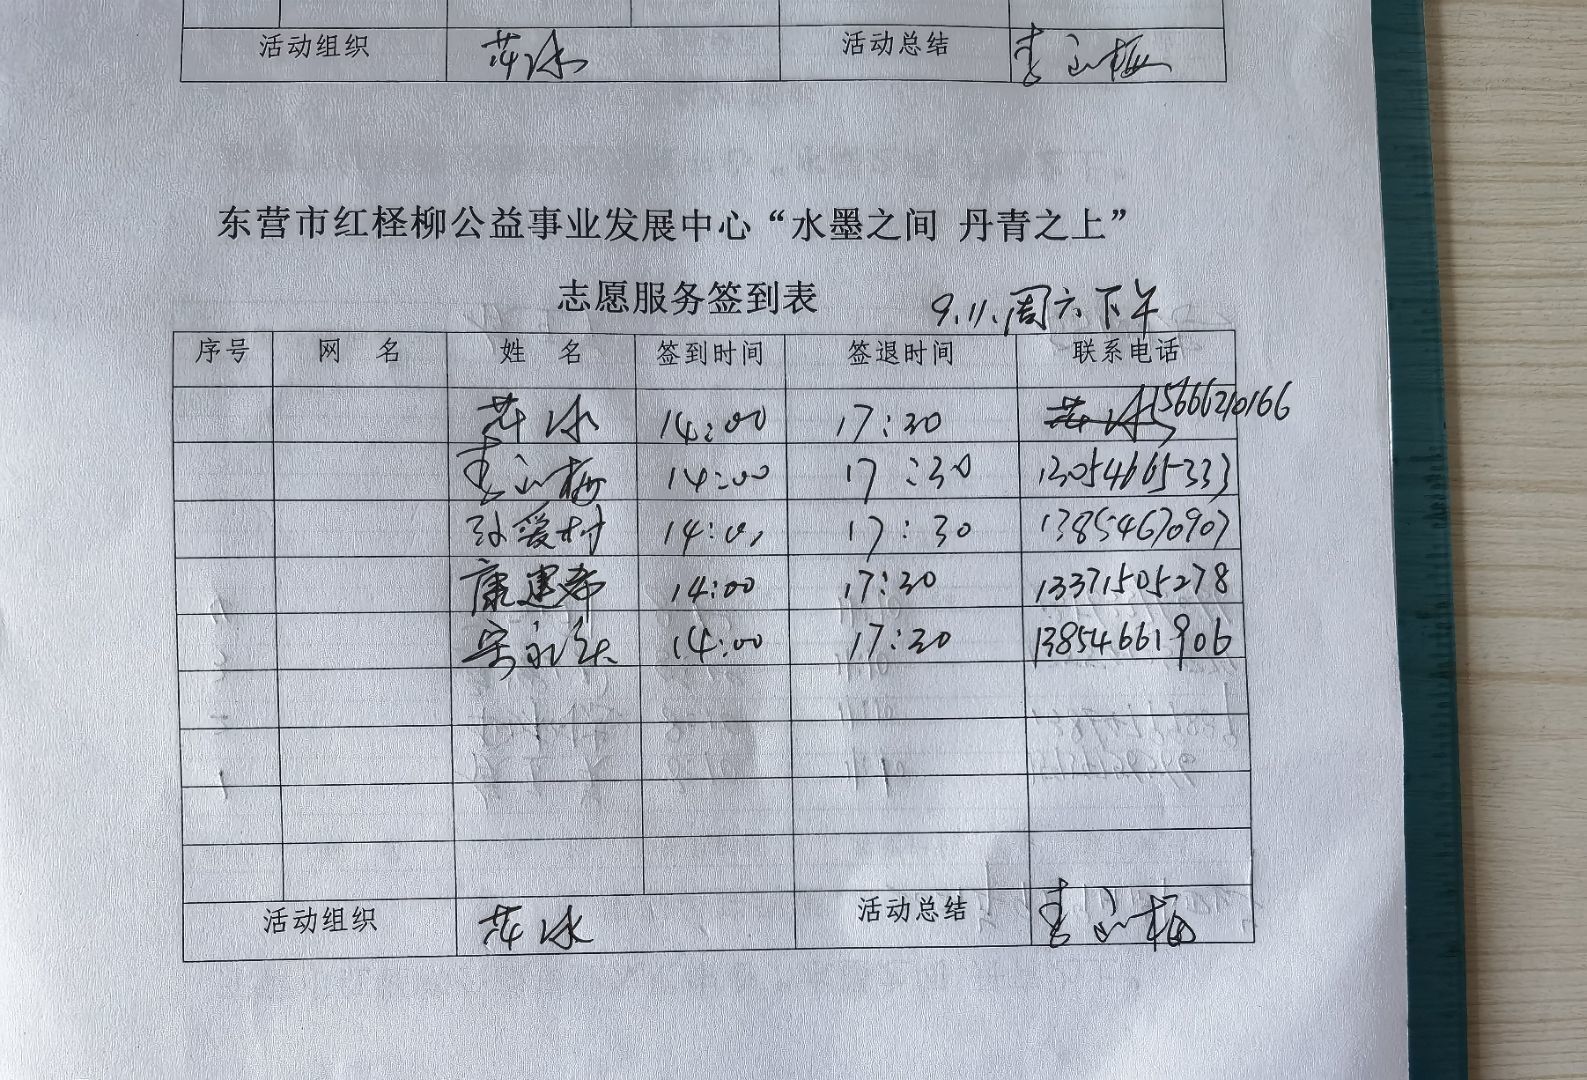 活动组织 活动总结
东营市红柽柳公益事业发展中心“水墨之间 丹青之上”
志愿服务签到表 9.11.周六下午
序号 网 名 姓 名 签到时间 签退时间 联系电话
冰 14:00 17:30 15666210166
梅 14:00 17:30 13054665333
孙爱村 14:00 17:30 13854670907
康建 14:00 17:30 13371505278
14:00 17:30 13854661906
活动组织 冰 活动总结 梅